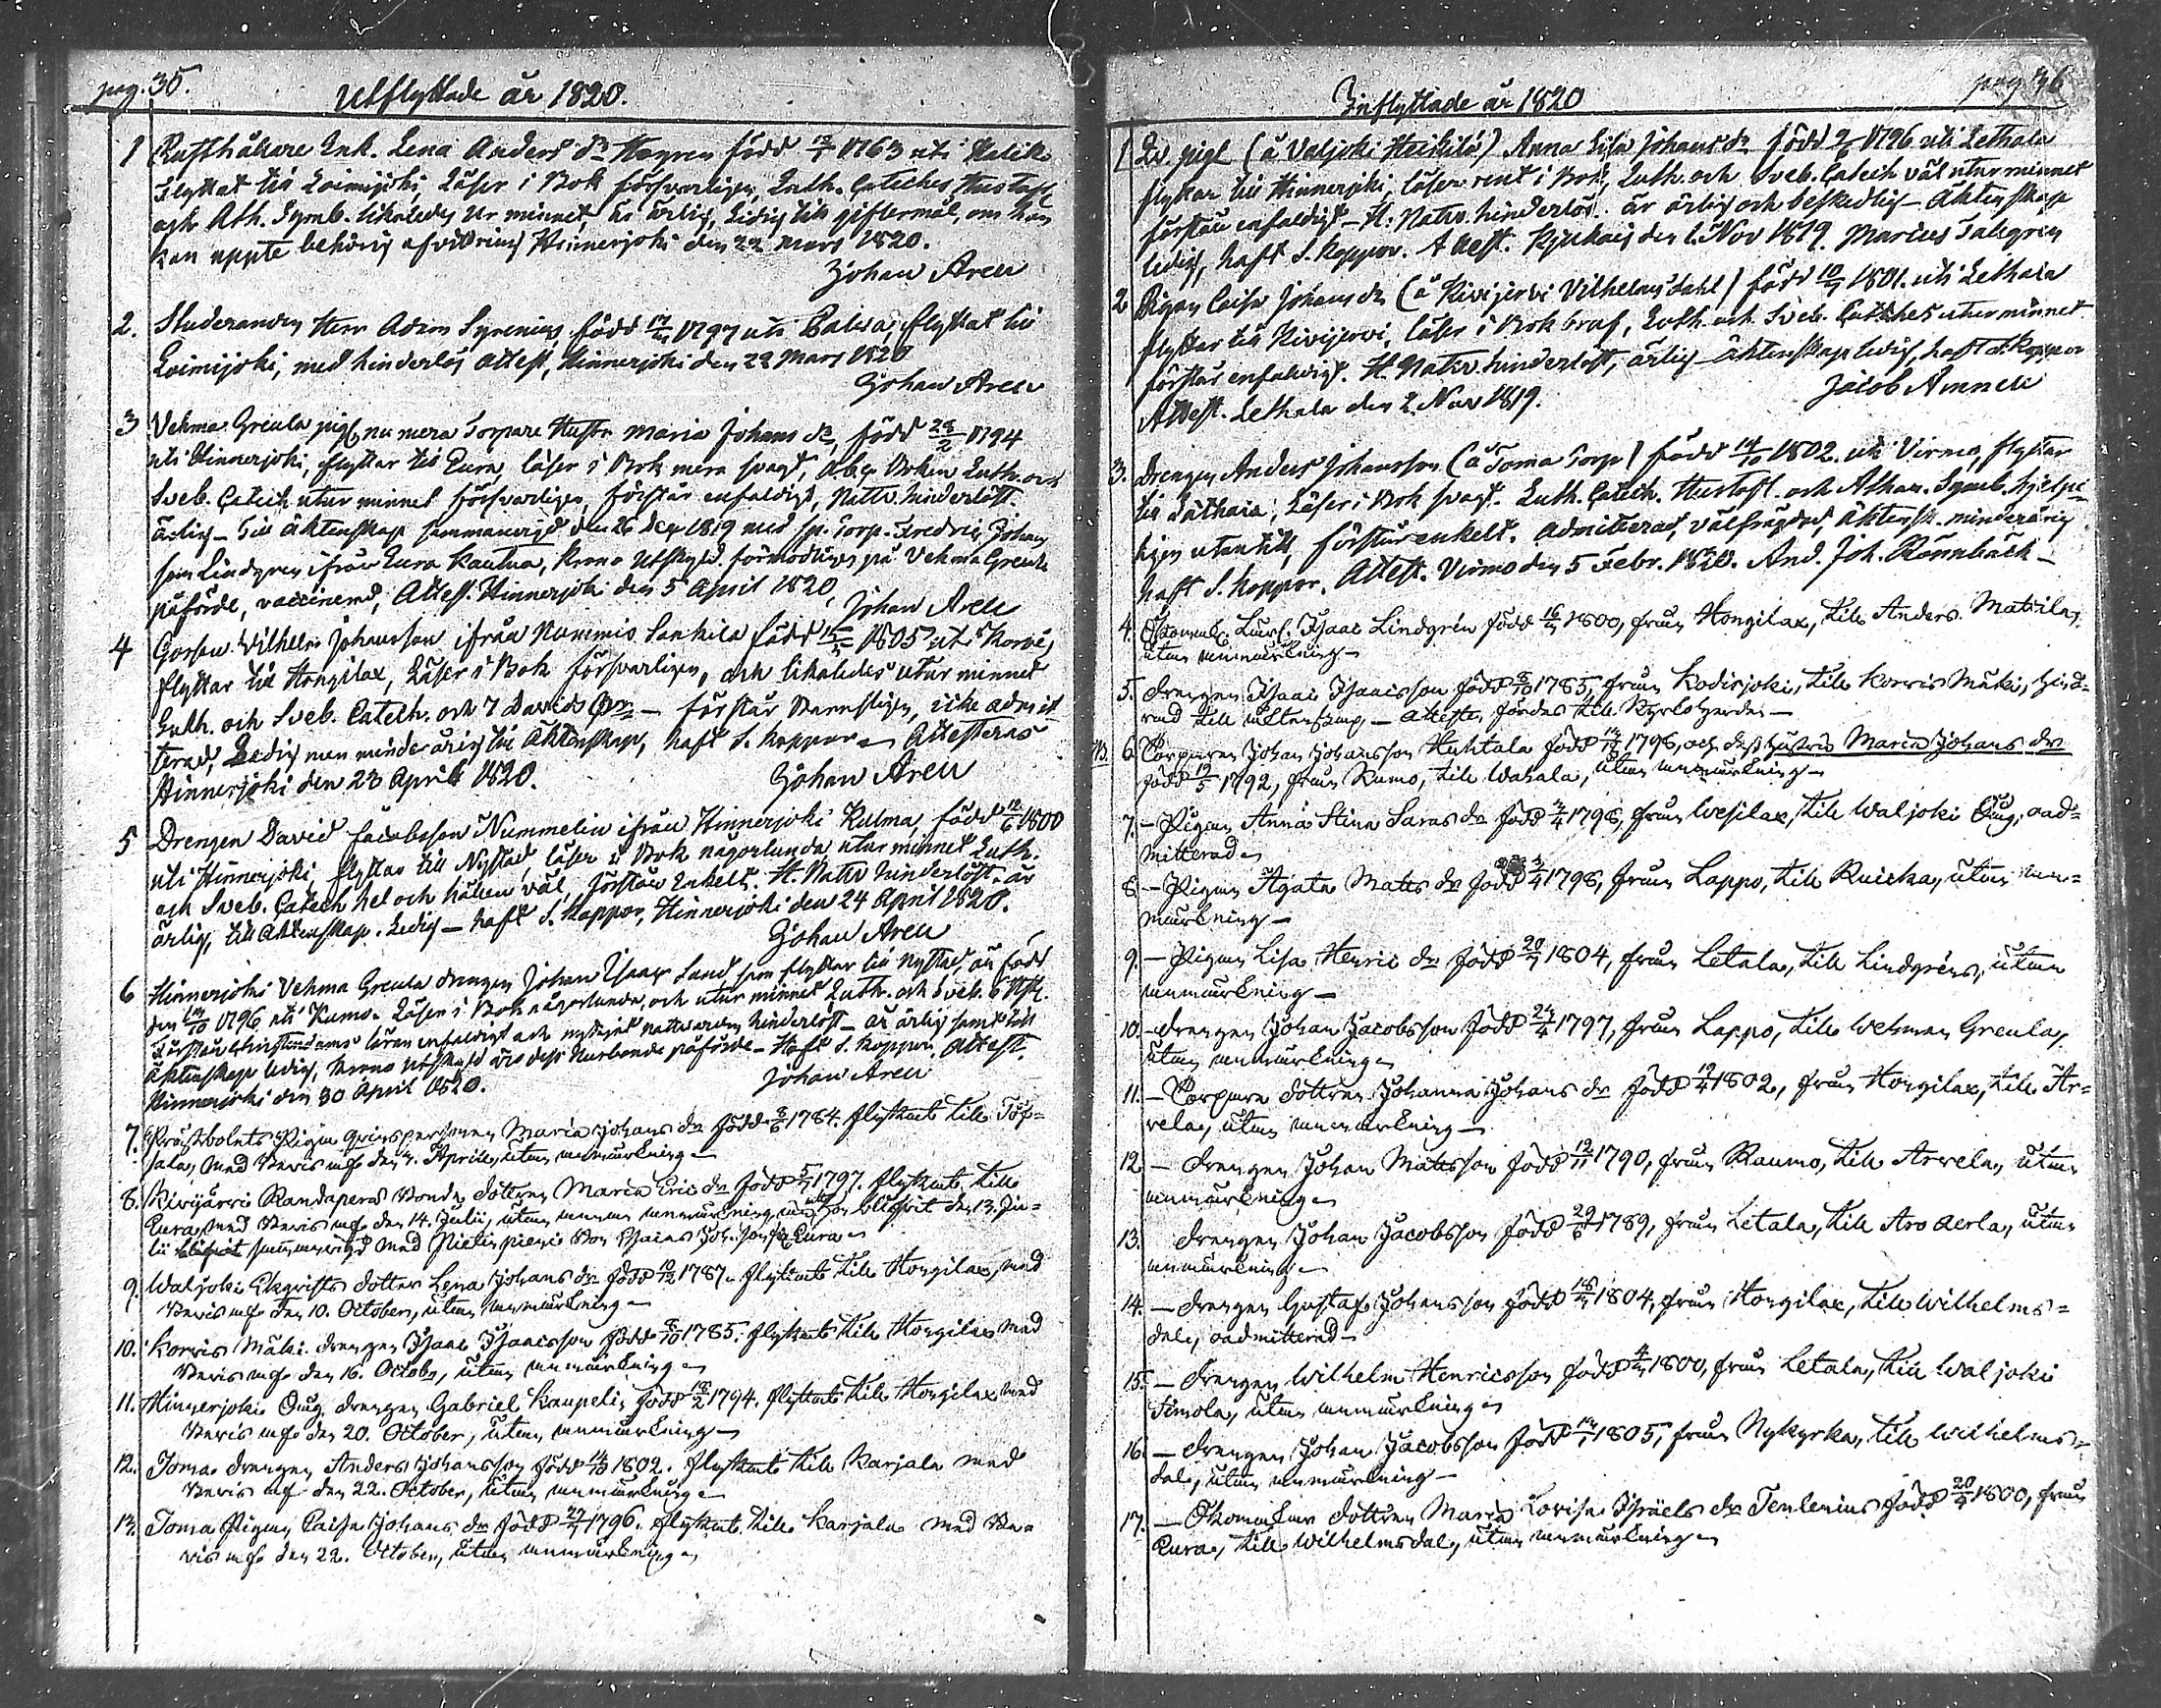 pag. 35.
Utflyttade år 1820.
1 Rusthållare Enk. Lena Anders dr född 1763 uti Halik
flyttat till Loimijoki, Läser i Bok försvarligen, Luth. Catches Hustafl
och Ath. Symb. likaledes ur minnet, är ärlig, Ledig till giftermål, om hon
kan uppte behörig afvittring Hinnerjoki den 22 Mars 1820.
Johan Aren
2. Studeranden Herr Adam Syrenius, född 1797 uti flyttat till
Loimijoki, med hinderlös attest, Hinnerjoki den 22 Mars 1820
Johan Aren
3 Vehma Greula pig, nu mera Torpare Hustr Maria Johans dr, född 28/2 1794
uti Hinnerjoki, flyttar till Eura, läser i Bok mera svagt, Abc Boken Luth. och
Sveb. Catech. utur minnet försvarligen, förstår enfaldigt, Nattv. hinderlöst.
ärlig – till äktenskap sammanvigd den 26 Dec 1819 med Torp. Fredric Johans
son Lindgren ifrån Eura Kautua, Krono Utskyld. förmodligen på Vehma Greula
påförde, vaccinerad, Attest. Hinnerjoki den 5 April 1820,
Johan Aren
4 Gossen Wilhelm Johansson ifrån Nummis Sankila född 1805 uti
flyttar till Hongilax, Läser i Bok försvarligen, och likaledes utur minnet
Luth. och Sveb. Catech. och 7 Davids – förstår icke admit-
terad, Ledig men minderårig till Äktenskap, haft S. koppor – Attesteras
Hinnerjoki den 23 April 1820. Johan Aren
5 Drengen David Jacobsson Nummelin ifrån Hinnerjoki Kulma, född 12/6 1800
uti Hinnerjoki, flyttar till Nystad, läser i Bok någorlunda utur minnet Luth.
och Sveb. Catech hel och hållen väl, förstår Enkelt. H. Nattv hinderlöst – är
ärlig, till äktenskap. Ledig – haft S. koppor, Hinnerjoki den 24 April 1820.
Johan Aren
6 Hinnerjoki Vehma Greula drengen Johan Isaac Sand, som flyttar till Nystad, är född
den 1796 uti Kumo. Läser i Bok någorlunda, och utur minnet Luth. och Sveb.
Förstår Christendoms läran enfaldigt och nyttjat nattvarden hinderlöst – är ärlig samt till
äktenskap ledig, haft S. koppor. Attest.
Hinnerjoki den 30 April 1820. Johan Aren
7. Pigan Maria Johans dr född 8/6 1784. flyttat till Töf-
sala, med Bevis af den 4. Aprill, utan anmärkning –
8. Kivijärvi Randaperä Bonde dottren Maria Eric dr född 1797. flyttat till
Eura, med Bevis af den 14. Julii, utan annan anmärkning än att hon blifvit den 13. Ju-
lii sammanvigd med i Eura –
9. Waljoki Ekqvists dotter Lena Johans dr född 10/12 1787. flyttat till Hongilax, med
Bevis af den 10. October, utan anmärkning –
10. Korvis Mäki drengen Isaac Isaacsson född 8/10 1785. flyttat till Hongilax med
Bevis af den 16. Octobr, utan anmärkning –
11. Hinnerjoki drengen Gabriel Kaupeli, född 18/2 1794. flyttat till Hongilax med
Bevis af den 20. October, utan anmärkning –
12. Toma drengen Anders Johansson född 14/10 1802. flyttat till Karjala med
Bevis af den 22. October, utan anmärkning –
13. Toma Pigan Caisa Johans dr född 1796. flyttat till Karjala med Be-
vis af den 22. October, utan anmärkning –
pag 36
Inflyttade år 1820
1 pigl (å Valjoki Heikilä) Anna Lisa Johans dr född 1796 uti Lethala
flyttar till Hinnerjoki, läser rent i Bok, Luth. och Sveb. Catech väl utur minnet
förstår enfaldigt – H. Nattv. hinderlös. är ärlig och beskedlig – Äktenskap
ledig, haft S. koppor. Attest. den 1. Nov 1819. Marcus Talgren
2 Pigan Caisa Johans dr (å Kivijervi Vilhelmsdahl) född 1801. uti Lethala
flyttar till Kivijervi, läser i Bok braf, Luth. och Sveb. Catches utur minnet
förstår enfaldigt. H. Nattv. hinderlöst, ärlig – äktenskap ledig, haft S. koppor
Attest. Lethala den 2. Nov 1819. Jacob Amnell
3. Drengen Anders Johansson (å Toma Torp) född 14/10 1802. uti Virmo, flyttar
till Läthala, Läser i Bok svagt. Luth. Catech. Hustafl. och Athan. Symb. hjelpe-
ligen utantill, förstår enkelt. Admitterad, välfrägdad, Äktensk. minderårig
haft S. koppor. Attest. Virmo den 5 Febr. 1820. And. Joh. Rönnbäck –
4. Isaac Lindgrén född 1800, från Hongilax, till Anders Mattila,
utan anmärkning –
5. Drengen Isaac Isaacsson född 8/10 1785, från Kodisjoki, till Korvis Mäki, hind-
rad till äktenskap –
6. Torparen Johan Johansson Huhtala född 1796, och dess hustru Maria Johans dr
född 19/5 1792, från Kumo, till Wahala, utan anmärkning –
7. – Pigan Anna Stina Saras dr född 1798, från Wesilax, till Waljoki oad-
mitterad –
8 – Pigan Agata Matts dr född 1798, från Lappo, till Ruicka, utan an-
märkning –
9. – Pigan Lisa Henric dr född 1804, från Letala, till Lindgréns, utan
anmärkning –
10. – drengen Johan Jacobsson född 24/4 1797, från Lappo, till Wehman Greula,
utan anmärkning –
11. – Torpare dottren Johanna Johans dr född 19/4 1802, från Hongilax, till Ar-
vela, utan anmärkning –
12 – Drengen Johan Mattsson född 12/11 1790, från Raumo, till Arvela, utan
anmärkning –
13. Drengen Johan Jacobsson född 29/6 1789, från Letala, till Aro aerla, utan
anmärkning –
14. – drengen Gustaf Johansson född 1804, från Hongilax, till Wilhelms-
dal, oadmitterad –
15. – drengen Wilhelm Henricsson född 1800, från Letala, till Waljoki
Simola, utan anmärkning –
16. – drengen Johan Jacobsson född 1805, från Nykyrka, till Wilhelms-
dal, utan anmärkning –
17. – dottren Maria Lovisa Israels dr Tenlenius född 1800, från
Eura, till Wilhelmsdal, utan anmärkning –